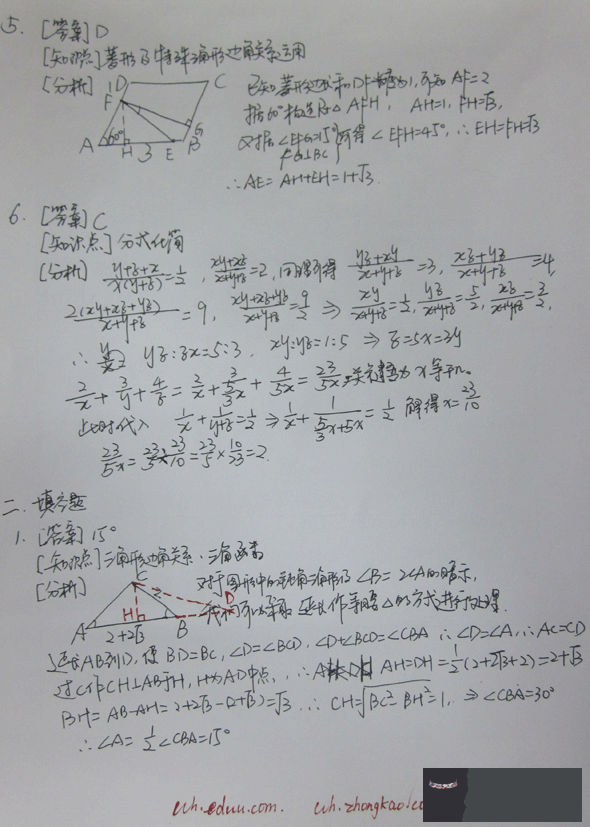 5. [答案] D
[知识点] 菱形及特殊三角形边角关系运用
[分析] 已知菱形边长和DF长为1,可知 AF=2
D C F A 60° H 3 E B G
据60°构造Rt△AFH, AH=1, FH=√3,
又据∠EFG=15° FG⊥BC 可得∠EFH=45°, ∴EH=FH=√3
∴AE=AH+EH=1+√3.
6. [答案] C
[知识点] 分式化简
[分析] (y+z+x)/(x(y+z))=1/2, (xy+xz)/(x+y+z)=2, 同理可得 (yz+xy)/(x+y+z)=3, (xz+yz)/(x+y+z)=4,
2(xy+xz+yz)/(x+y+z)=9, (xy+xz+yz)/(x+y+z)=9/2 ⇒ xy/(x+y+z)=1/2, yz/(x+y+z)=5/2, xz/(x+y+z)=3/2,
∴ yz:zx=5:3, xy:yz=1:5 ⇒ z=5x=3y
2/x+3/y+4/z=2/x+3/(5/3x)+4/5x=23/5x, 关键为x等于几。
此时代入 1/x+1/(y+z)=1/2 ⇒ 1/x+1/(5/3x+5x)=1/2 解得x=23/10
23/5x=23/5×23/10=23/5×10/23=2.
二、填空题
1. [答案] 15°
[知识点] 三角形边角关系、三角函数
[分析] 对于图形中的钝角三角形及∠B=2∠A的暗示,
C A H B D 2+2√3 2
我们可以采取延长作等腰△的方式进行处理.
延长AB到D, 使BD=BC, ∠D=∠BCD, ∠D+∠BCD=∠CBA ∴∠D=∠A, ∴AC=CD
过C作CH⊥AB于H, H为AD中点, ∴AH=DH=1/2(2+2√3+2)=2+√3
BH=AB-AH=2+2√3-(2+√3)=√3 ∴CH=√(BC²-BH²)=1, ⇒∠CBA=30°
∴∠A=1/2∠CBA=15°
wh.eduu.com. wh.zhongkao.co